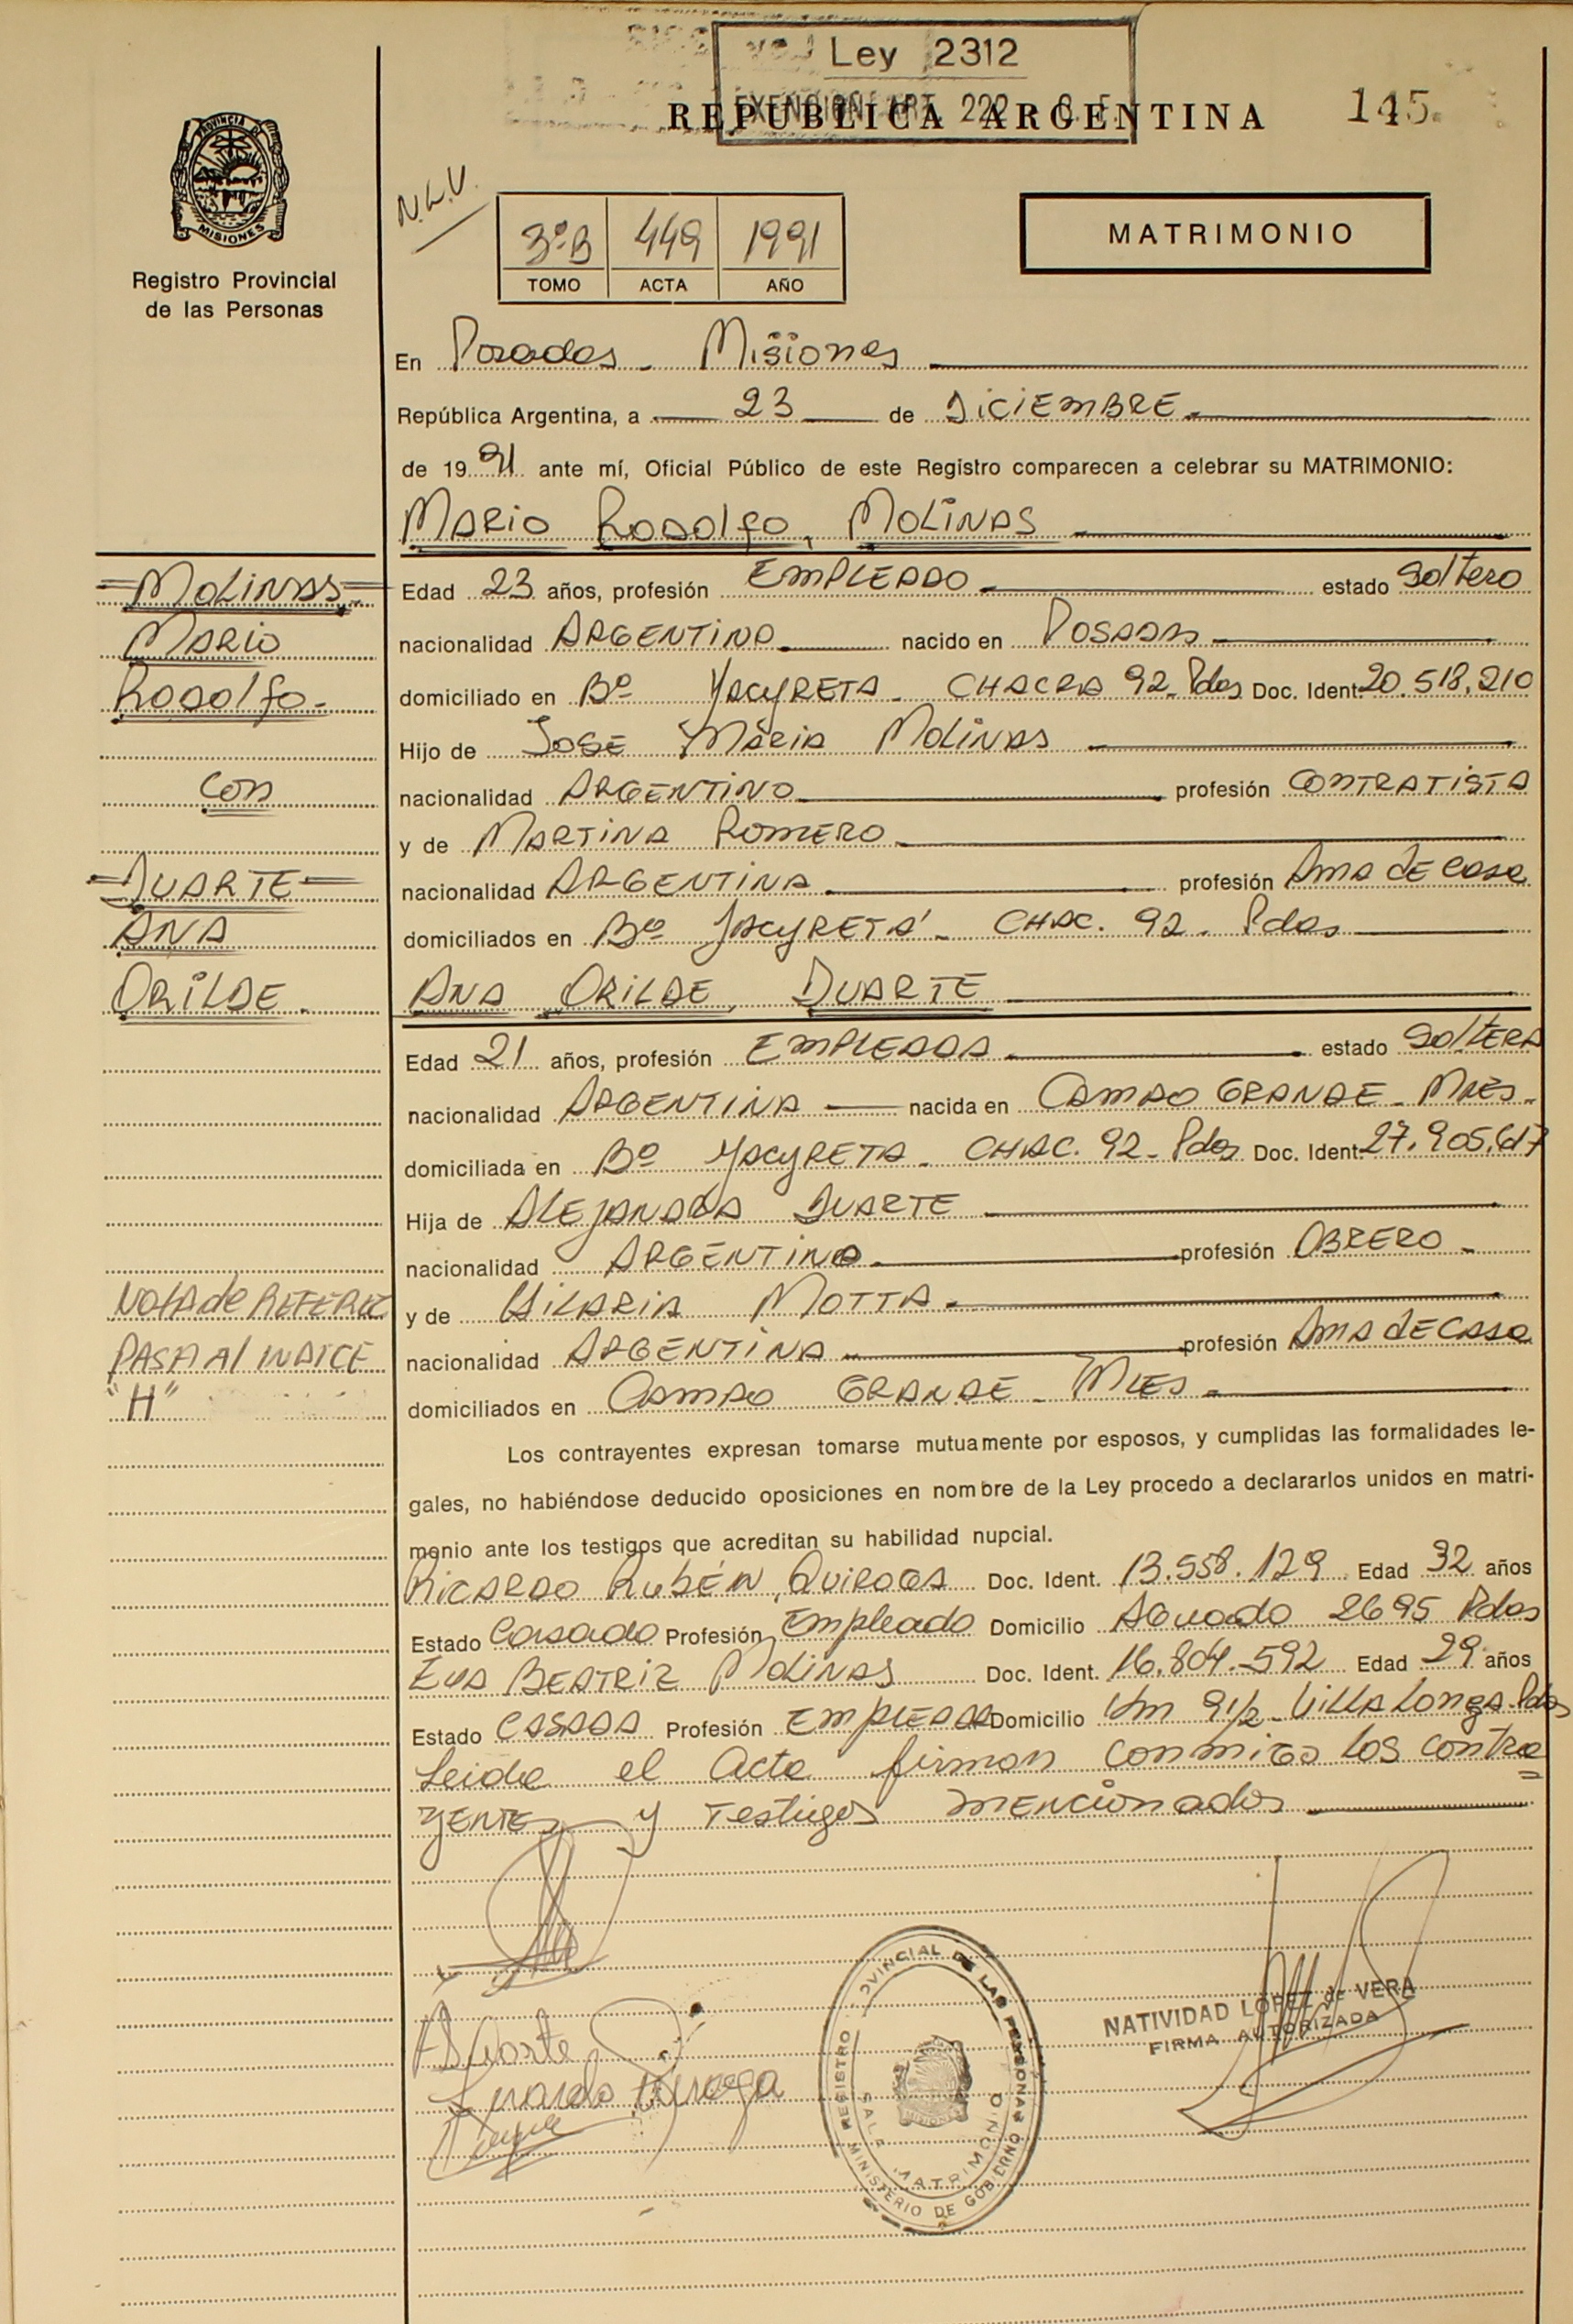 Ley 2312
EXENCION ART. 222 C. F.
REPUBLICA ARGENTINA
145
PROVINCIA DE
MISIONES
Registro Provincial
de las Personas
N.L.V.
3ºB 449 1991
TOMO ACTA AÑO
MATRIMONIO
En Posadas - Misiones
República Argentina, a 23 de DiCiEMBRE
de 1991 ante mí, Oficial Público de este Registro comparecen a celebrar su MATRIMONIO:
MARiO RODOLFO, MOLiNAS
MOLiNAS
MARiO
RODOLFO
con
DUARTE
ANA
ORiLDE
Edad 23 años, profesión EMPLEADO estado Soltero
nacionalidad ARGENTINO nacido en POSADAS
domiciliado en Bº YACYRETA - CHACRA 92 - Pdas Doc. Ident. 20.518.210
Hijo de JOSE MARIA MOLiNAS
nacionalidad ARGENTINO profesión CONTRATISTA
y de MARTINA ROMERO
nacionalidad ARGENTINA profesión Ama de casa
domiciliados en Bº YACYRETA' - CHAC. 92 - Pdas
ANA ORiLDE, DUARTE
Edad 21 años, profesión EMPLEADA estado SOLTERA
nacionalidad ARGENTINA nacida en CAMPO GRANDE - Mnes -
domiciliada en Bº YACYRETA - CHAC. 92 - Pdas Doc. Ident. 27.905.617
Hija de DUARTE
nacionalidad ARGENTINO profesión OBRERO -
y de HILARIA MOTTA -
nacionalidad ARGENTINA profesión Ama de CASA
domiciliados en CAMPO GRANDE - Mnes -
NOTA de REFEREC
PASA Al INDICE
"H"
Los contrayentes expresan tomarse mutuamente por esposos, y cumplidas las formalidades le-
gales, no habiéndose deducido oposiciones en nombre de la Ley procedo a declararlos unidos en matri-
monio ante los testigos que acreditan su habilidad nupcial.
RiCARDO RUBÉN, QUIROGA Doc. Ident. 13.558.129 Edad 32 años
Estado Casado Profesión Empleado Domicilio AGUADO 2695 Pdas
EVA BEATRIZ MOLiNAS Doc. Ident. 16.804.592 Edad 29 años
Estado CASADA Profesión EMPLEADA Domicilio Km 9 1/2 - VILLA Longa Pdas
Leida el Acta firman conmigo los contra
YENTES y Testigos mencionados
ADuarte
Ricardo Quiroga
REGISTRO PROVINCIAL DE LAS PERSONAS
SALA MATRIMONIO
MINISTERIO DE GOBIERNO
NATIVIDAD LOPEZ de VERA
FIRMA AUTORIZADA